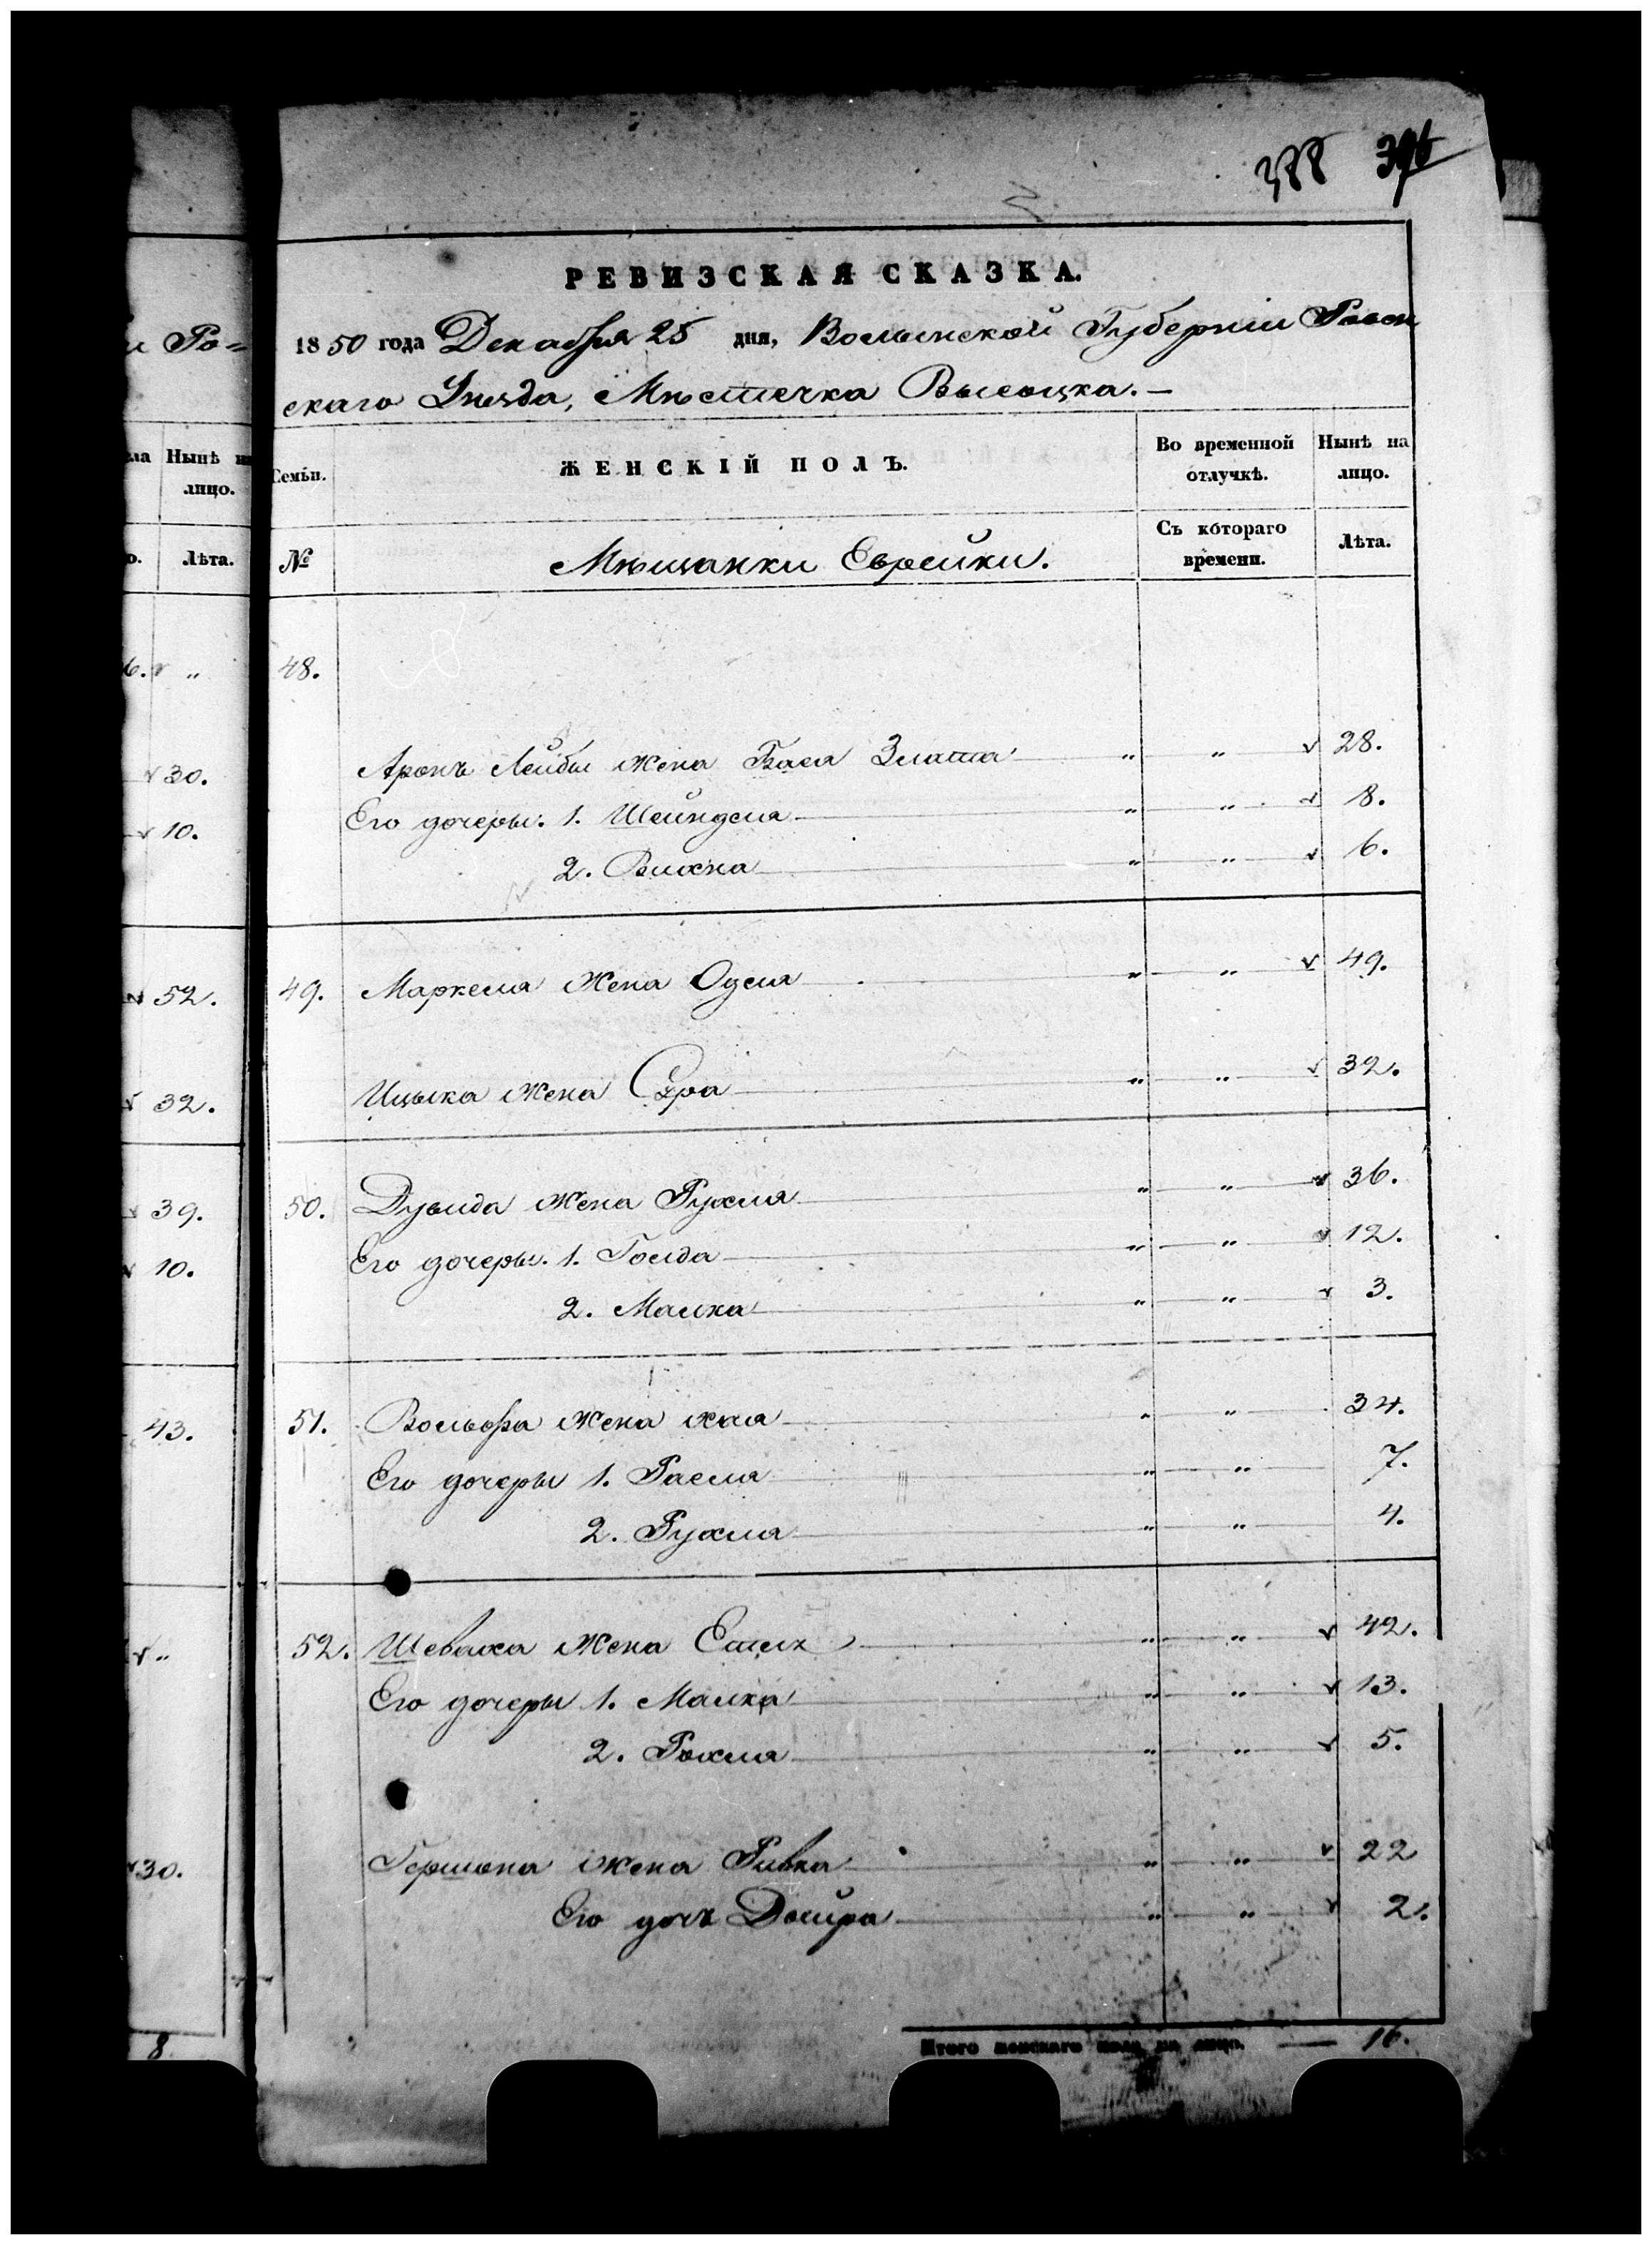 388 396
РЕВИЗСКАЯ СКАЗКА.
1850 года Декабря 25 дня, Волынской Губернiи Ровен
скаго Уѣзда, Мѣстечка Высоцка.—
Семьи.
ЖЕНСКIЙ ПОЛЪ.
Во временной отлучкѣ.
Нынѣ на лицо.
№
Мѣщанки Еврейки.
Съ котораго времени.
Лѣта.
48.
Аронъ Лейбы жена Бася Злата „ „ 28.
Его дочеры: 1. Шейндля „ „ 8.
2. Вихна „ „ 6.
49. Маркеля жена Одля „ „ 49.
Ицька жена Сура „ „ 32.
50. Дувида жена Рухля „ „ 36.
Его дочеры. 1. Голда „ „ 12.
2. Малка „ „ 3.
51. Вольфа жена хая „ „ 34.
Его дочеры 1. Раеля „ „ 7.
2. Рухля „ „ 4.
52. Шеваха жена „ „ 42.
Его дочеры 1. Малка „ „ 13.
2. Рохля „ „ 5.
Гершона жена Ривка „ „ 22
Его дочь Двойра „ „ 2.
Итого женскаго пола на лицо. — 16.
и Ро=
ла Нынѣ на
лицо.
о. Лѣта.
6. „
30.
10.
52.
32.
39.
10.
43.
„
30.
8